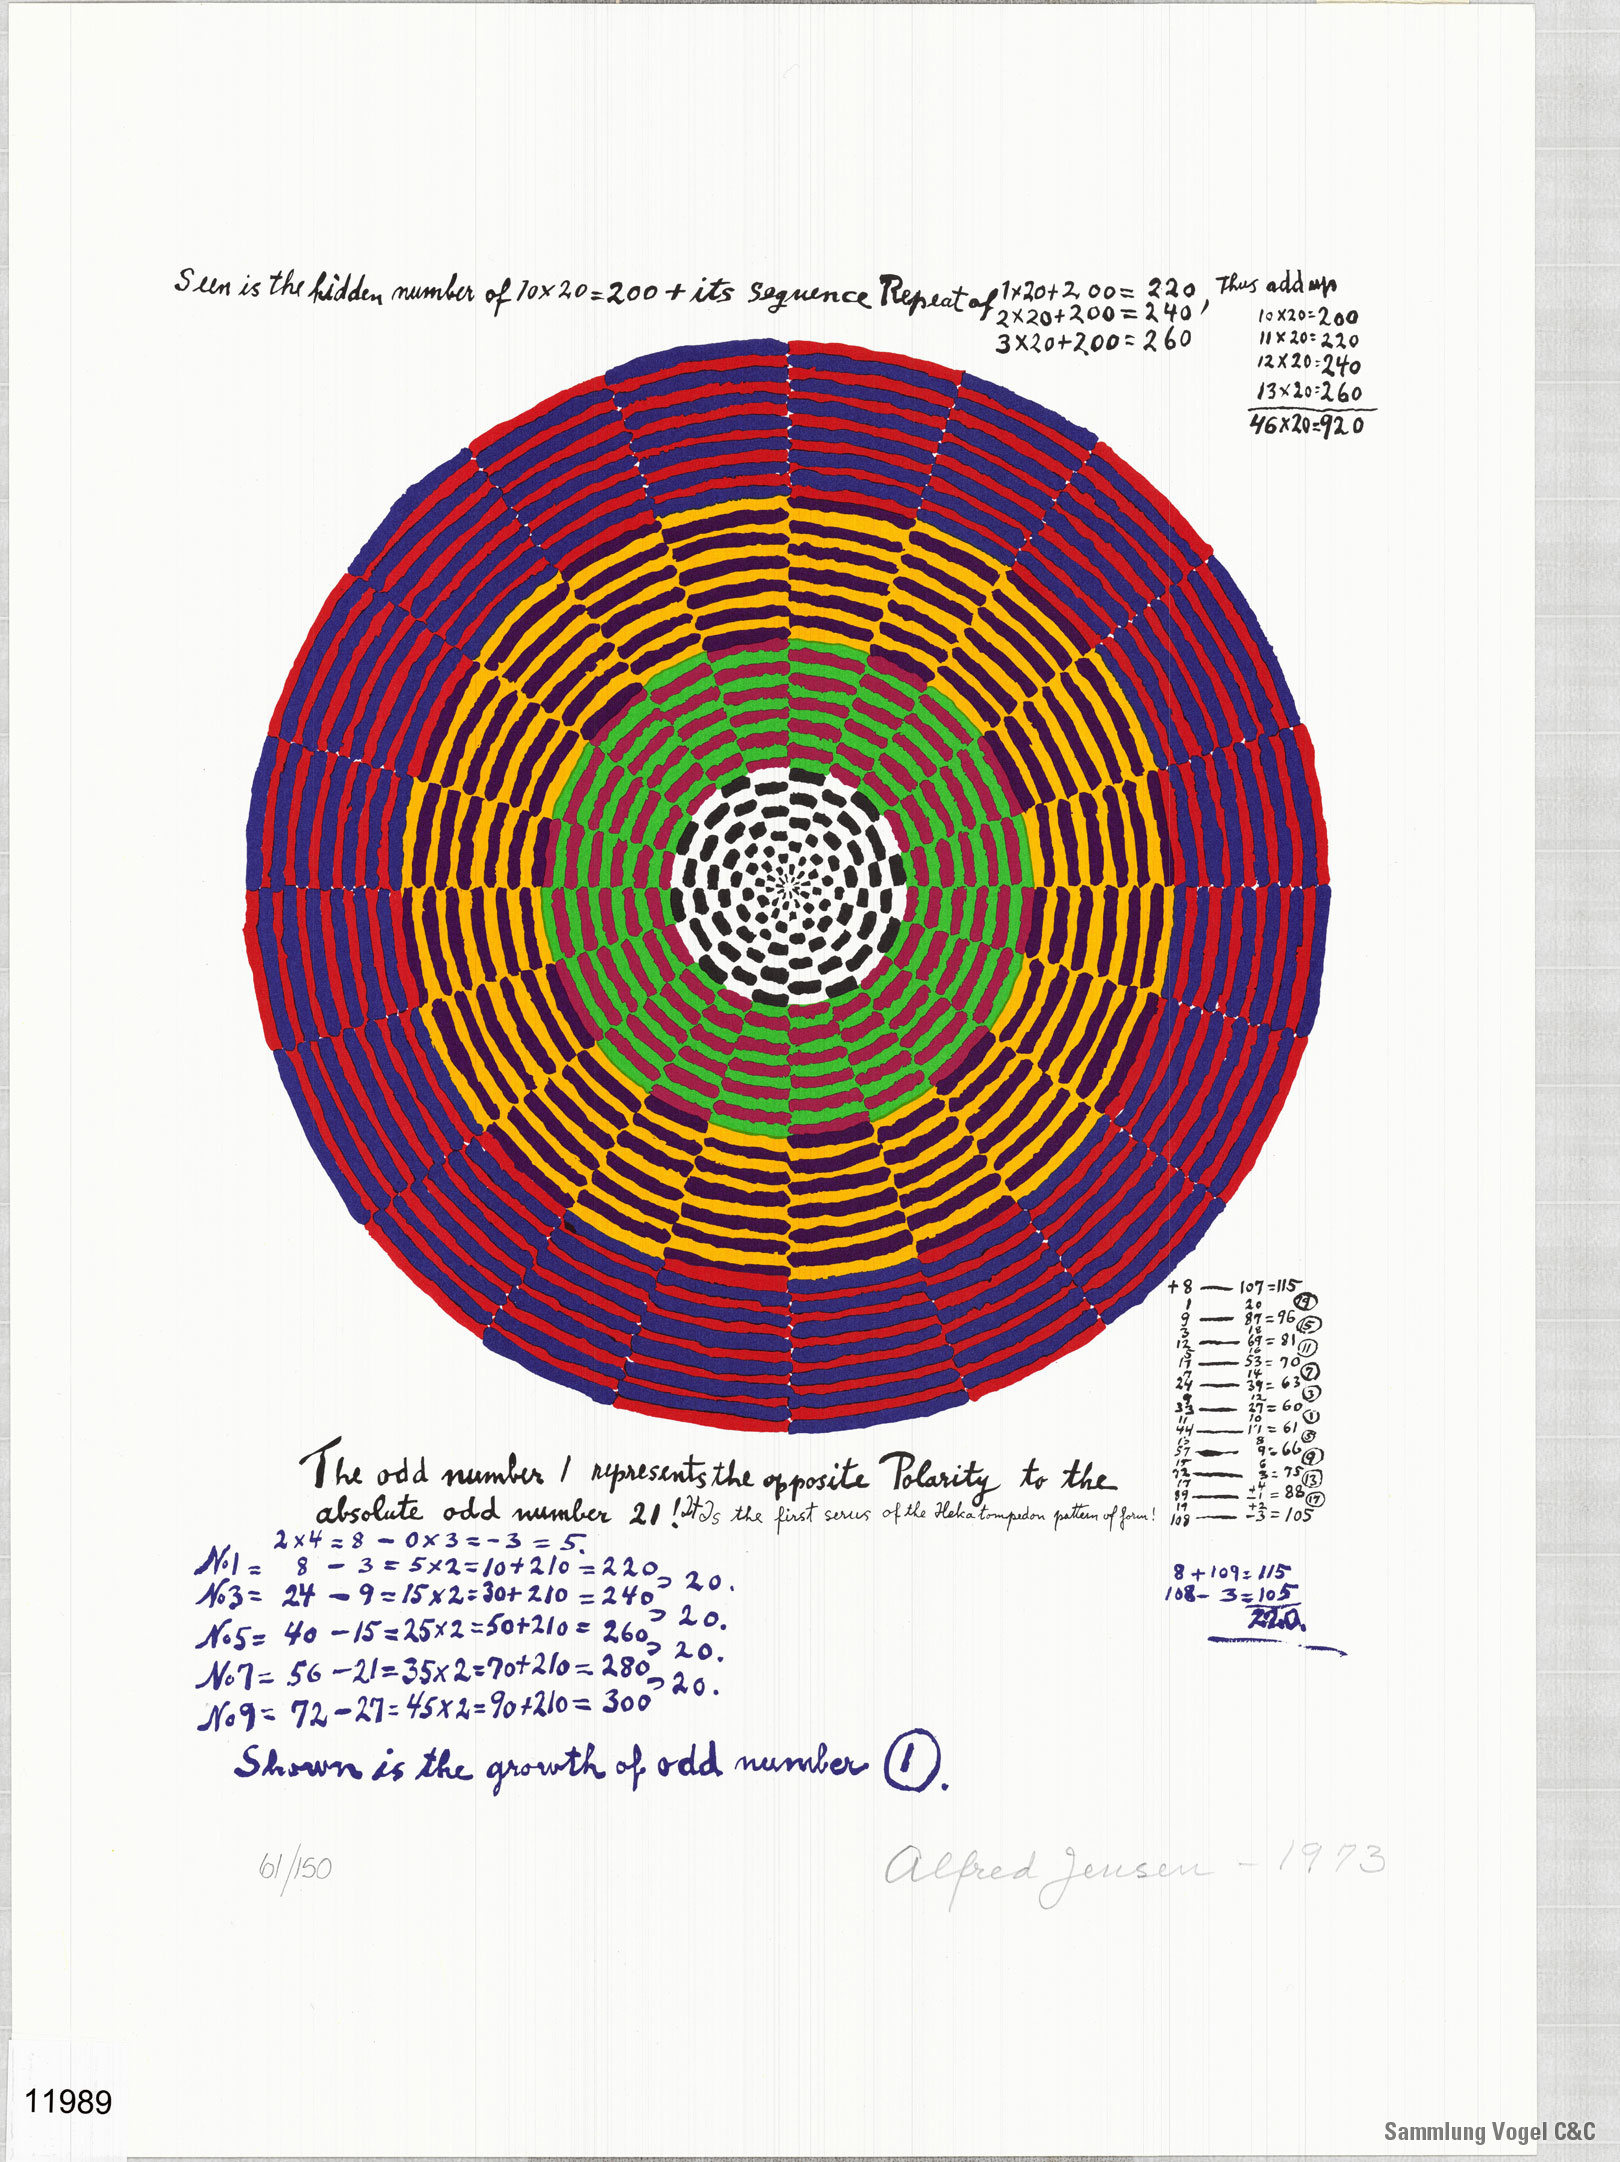 Seen is the hidden number of 10×20=200 + its sequence Repeat of 1×20+200= 220, Thus add up
2×20+200=240
3×20+200=260
10×20=200
11×20=220
12×20=240
13×20=260
46×20=920
+8 — 107=115
1 20 19
9 — 87=96
3 18 15
12 — 69=81
5 16 11
17 — 53=70
7 14 7
24 — 39=63
9 12 3
33 — 27=60
11 10 1
44 — 17=61
13 8 5
57 — 9=66
15 6 9
72 — 3=75
17 4 13
89 — -1=88
19 +2 17
108 — -3=105
The odd number 1 represents the opposite Polarity to the
absolute odd number 21! It Is the first serus of the Hekatompedon pattern of form!
2×4=8 - 0×3=-3=5.
No1= 8 - 3=5×2=10+210=220
No3= 24 - 9=15×2=30+210=240 > 20.
No5= 40 - 15=25×2=50+210= 260 > 20.
No7= 56 - 21=35×2=70+210=280 > 20.
No9= 72 - 27=45×2=90+210= 300 > 20.
8+109=115
108- 3=105
220.
Shown is the growth of odd number 1.
61/150
Alfred Jensen - 1973
11989
Sammlung Vogel C&C